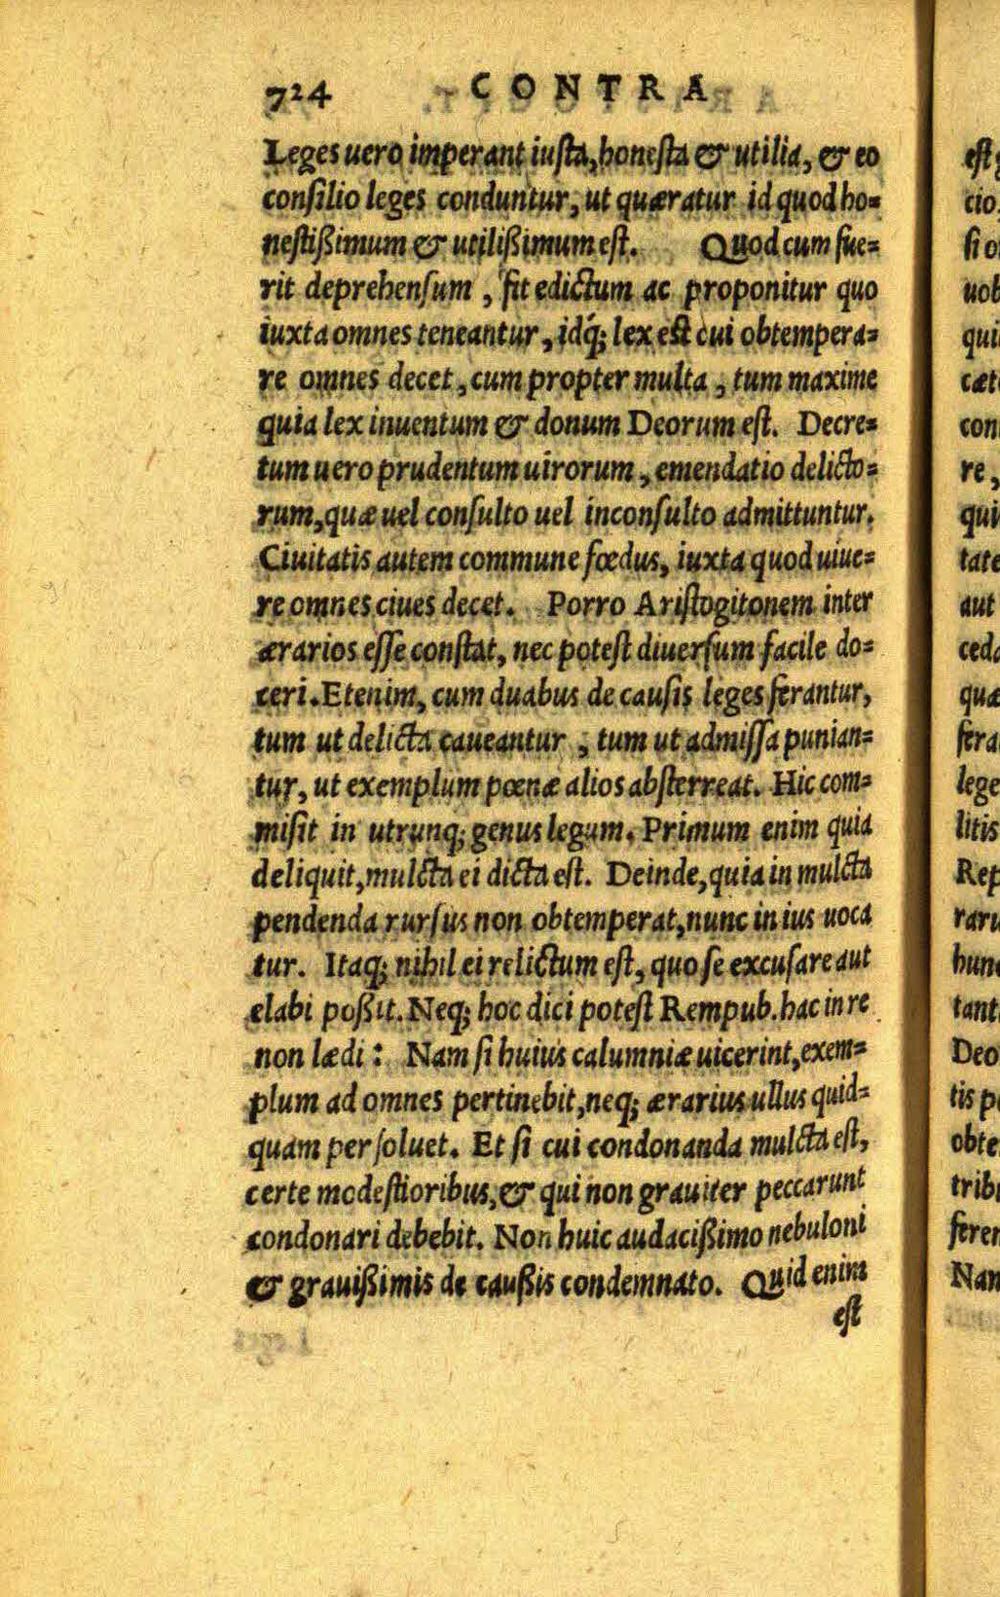 724 CONTRA
Leges uero imperant iusta, honesta & utilia, & eo
consilio leges conduntur, ut quæratur id quod ho=
nestißimum & utilißimum est. Quod cum fue=
rit deprehensum, fit edictum ac proponitur quo
iuxta omnes teneantur, idq́; lex est cui obtempera=
re omnes decet, cum propter multa, tum maxime
quia lex inuentum & donum Deorum est. Decre=
tum uero prudentum uirorum, emendatio delicto=
rum, quæ uel consulto uel inconsulto admittuntur.
Ciuitatis autem commune fœdus, iuxta quod uiue=
re omnes ciues decet. Porro Aristogitonem inter
ærarios esse constat, nec potest diuersum facile do=
ceri. Etenim, cum duabus de causis leges ferantur,
tum ut delicta caueantur, tum ut admissa punian=
tur, ut exemplum pœnæ alios absterreat. Hic com=
misit in utrunq; genus legum. Primum enim quia
deliquit, mulcta ei dicta est. Deinde, quia in mulcta
pendenda rursus non obtemperat, nunc in ius uoca
tur. Itaq; nihil ei relictum est, quo se excusare aut
elabi poßit. Neq; hoc dici potest Rempub. hac in re
non lædi: Nam si huius calumniæ uicerint, exem=
plum ad omnes pertinebit, neq; ærarius ullus quid=
quam persoluet. Et si cui condonanda mulcta est,
certe modestioribus, & qui non grauiter peccarunt
condonari debebit. Non huic audacißimo nebuloni
& grauißimis de caußis condemnato. Quid enim
est
est
cio.
si o
uob
qui
cæt
con
re,
qui
tate
aut
ceda
qua
fera
lege
litis
Rep
raru
hunc
tant
Deo
tis p
obte
tribu
ferer
Nam